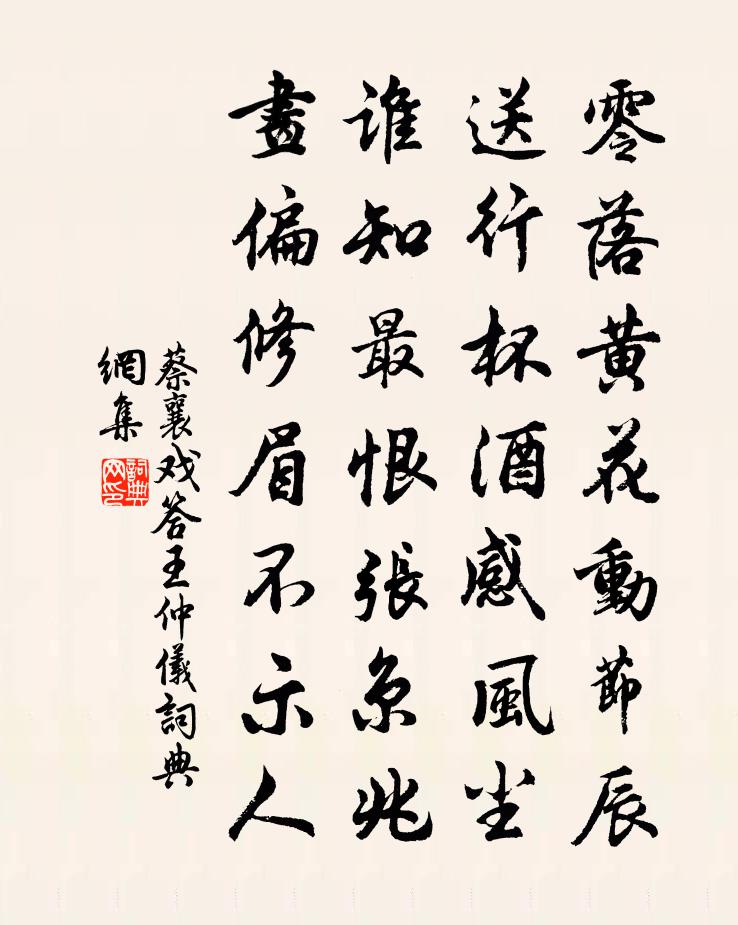 零落黄花動節辰
送行杯酒感風尘
誰知最恨張京兆
畫偏修眉不示人
蔡襄戏答王仲儀詞典
網集
詞典
网印